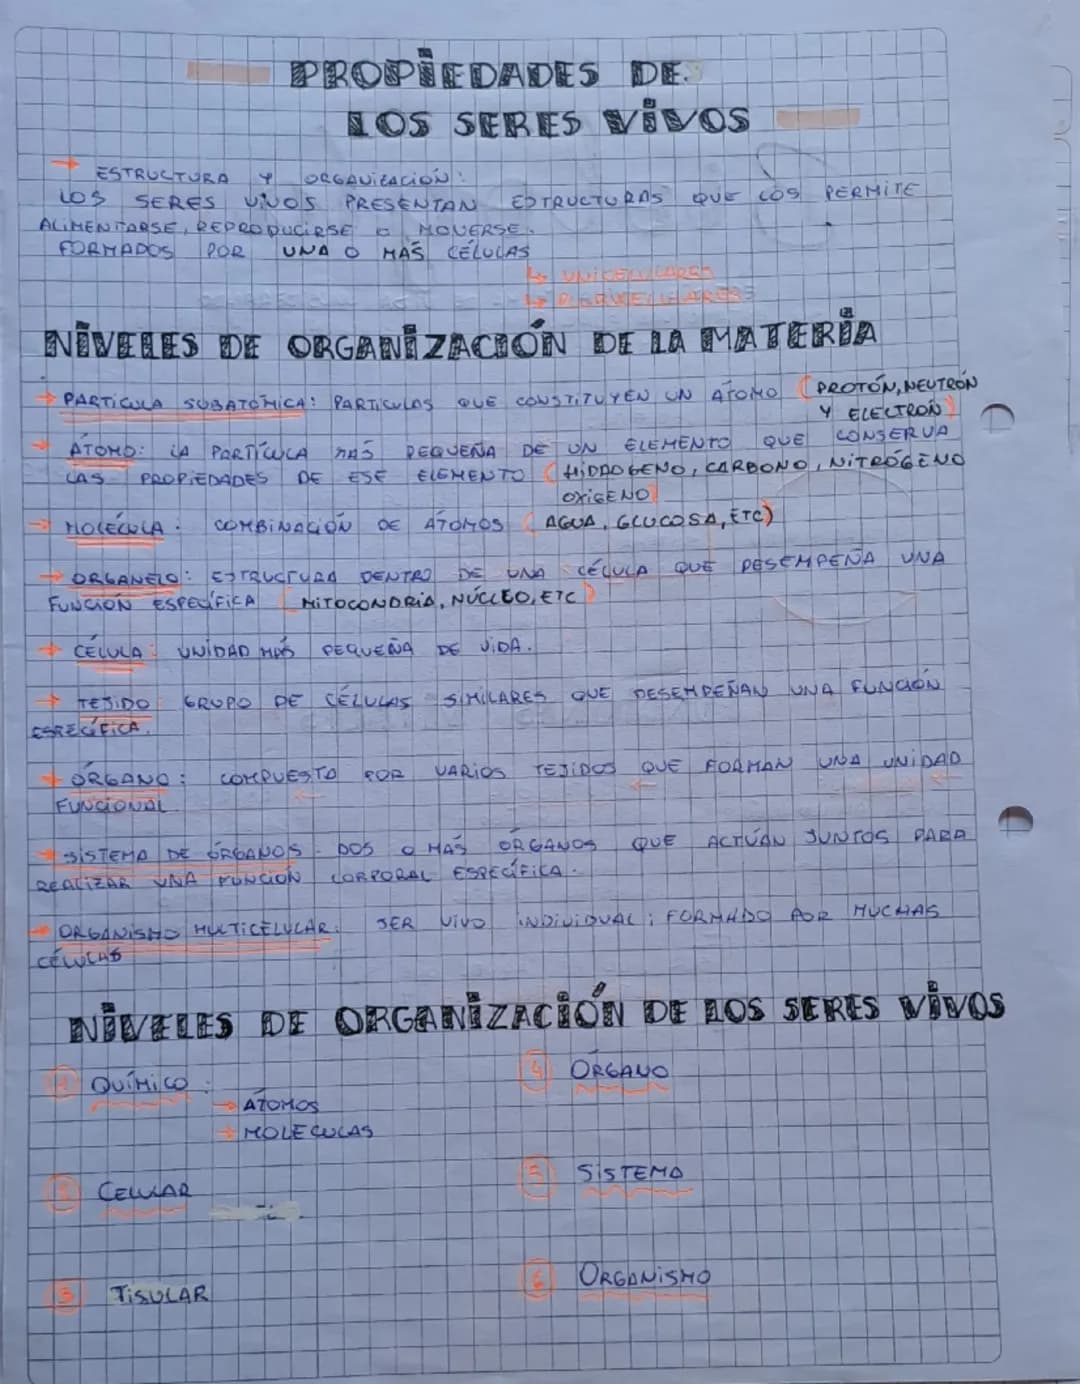 PROPIEDADES DE
LOS SERES VIVOS
→ ESTRUCTURA Y ORGANIZACIÓN:
LOS SERES VIVOS PRESENTAN ESTRUCTURAS QUE LOS PERMITE
ALIMENTARSE, REPRODUCIRSE O MOVERSE.
FORMADOS POR UNA O MÁS CÉLULAS
↳ UNICELULARES
↳ PLURICELULARES
NIVELES DE ORGANIZACIÓN DE LA MATERIA
→ PARTICULA SUBATÓMICA: PARTICULAS QUE CONSTITUYEN UN ÁTOMO (PROTÓN, NEUTRÓN
Y ELECTRÓN)
→ ÁTOMO: LA PARTÍCULA MÁS PEQUEÑA DE UN ELEMENTO QUE CONSERVA
LAS PROPIEDADES DE ESE ELEMENTO (HIDROGENO, CARBONO, NITRÓGENO
OXIGENO)
→ MOLÉCULA: COMBINACIÓN DE ÁTOMOS (AGUA, GLUCOSA, ETC)
→ ORGANELO: ESTRUCTURA DENTRO DE UNA CÉLULA QUE DESEMPEÑA UNA
FUNCIÓN ESPECÍFICA (MITOCONDRIA, NÚCLEO, ETC)
→ CÉLULA: UNIDAD MÁS PEQUEÑA DE VIDA.
→ TEJIDO: GRUPO DE CÉLULAS SIMILARES QUE DESEMPEÑAN UNA FUNCIÓN
ESPECÍFICA.
→ ÓRGANO: COMPUESTO POR VARIOS TEJIDOS QUE FORMAN UNA UNIDAD
FUNCIONAL
→ SISTEMA DE ÓRGANOS: DOS O MÁS ÓRGANOS QUE ACTÚAN JUNTOS PARA
REALIZAR UNA FUNCIÓN CORPORAL ESPECÍFICA.
→ ORGANISMO MULTICELULAR: SER VIVO INDIVIDUAL; FORMADO POR MUCHAS
CÉLULAS
NIVELES DE ORGANIZACIÓN DE LOS SERES VIVOS
1 QUÍMICO:
→ ÁTOMOS
→ MOLECULAS
2 CELULAR
3 TISULAR
4 ÓRGANO
5 SISTEMA
6 ORGANISMO